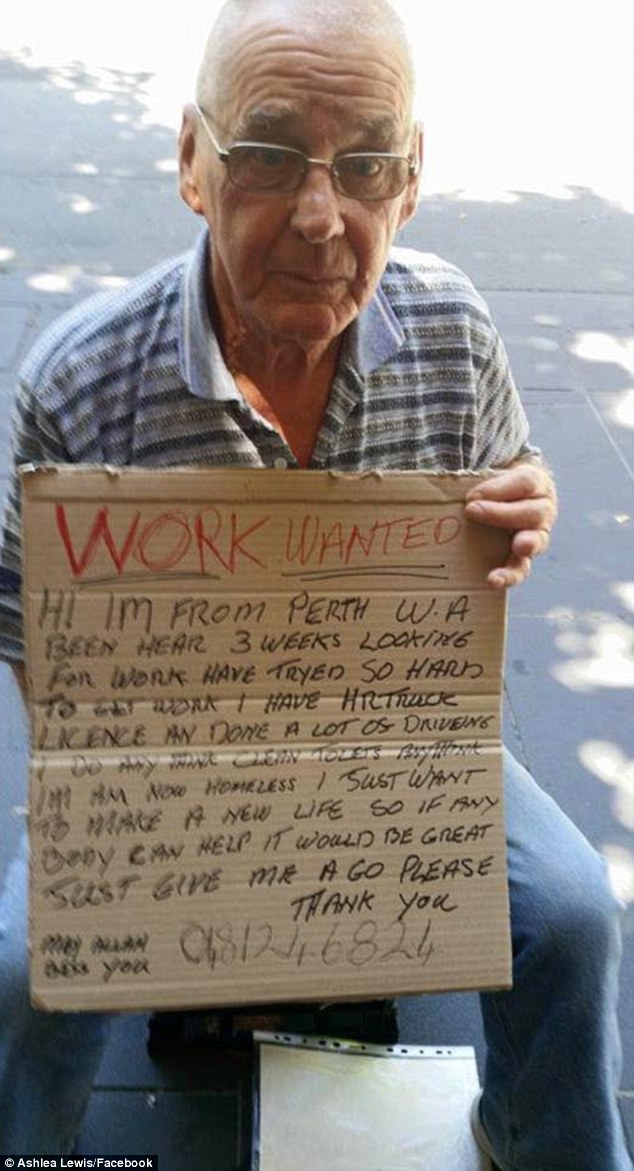 WORK WANTED
HI IM FROM PERTH W.A
BEEN HEAR 3 WEEKS LOOKING
FOR WORK HAVE TRYED SO HARD
TO GET WORK I HAVE HR TRUCK
LICENCE AN DONE A LOT OS DRIVEING
I DO ANY THINK CLEAN TOLETS ANYTHINK
IM AM NOW HOMELESS I JUST WANT
TO MAKE A NEW LIFE SO IF ANY
BODY CAN HELP IT WOULD BE GREAT
JUST GIVE ME A GO PLEASE
THANK YOU
MAY ALLAH
BESS YOU
0481246824
© Ashlea Lewis/Facebook